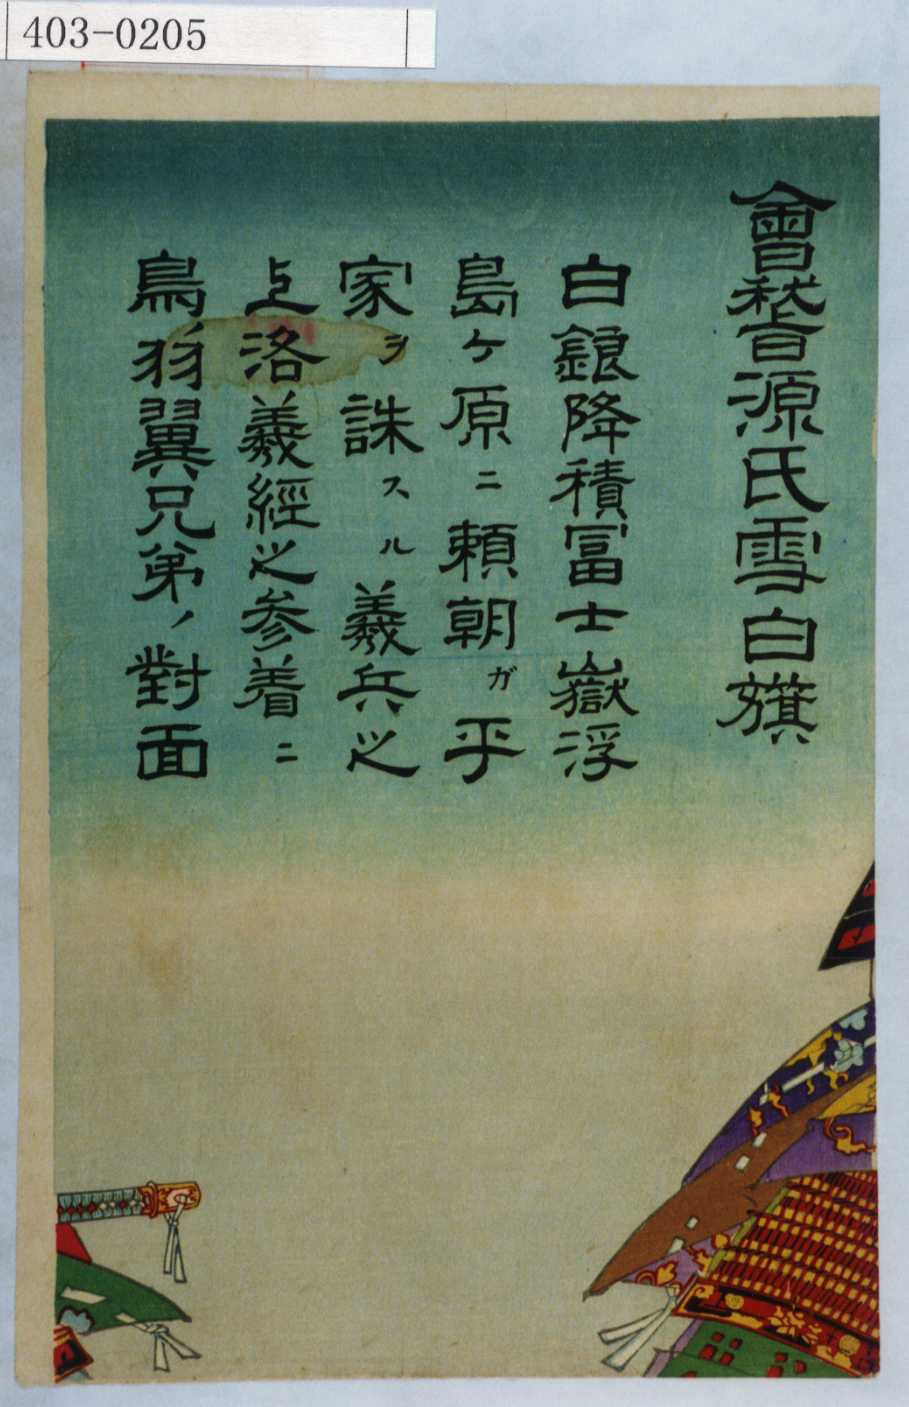 403-0205
會稽源氏雪白旗
白銀降積冨士嶽浮
島ケ原ニ頼朝ガ平
家ヲ誅スル義兵之
上洛義經之参着ニ
鳥羽翼兄弟ノ對面